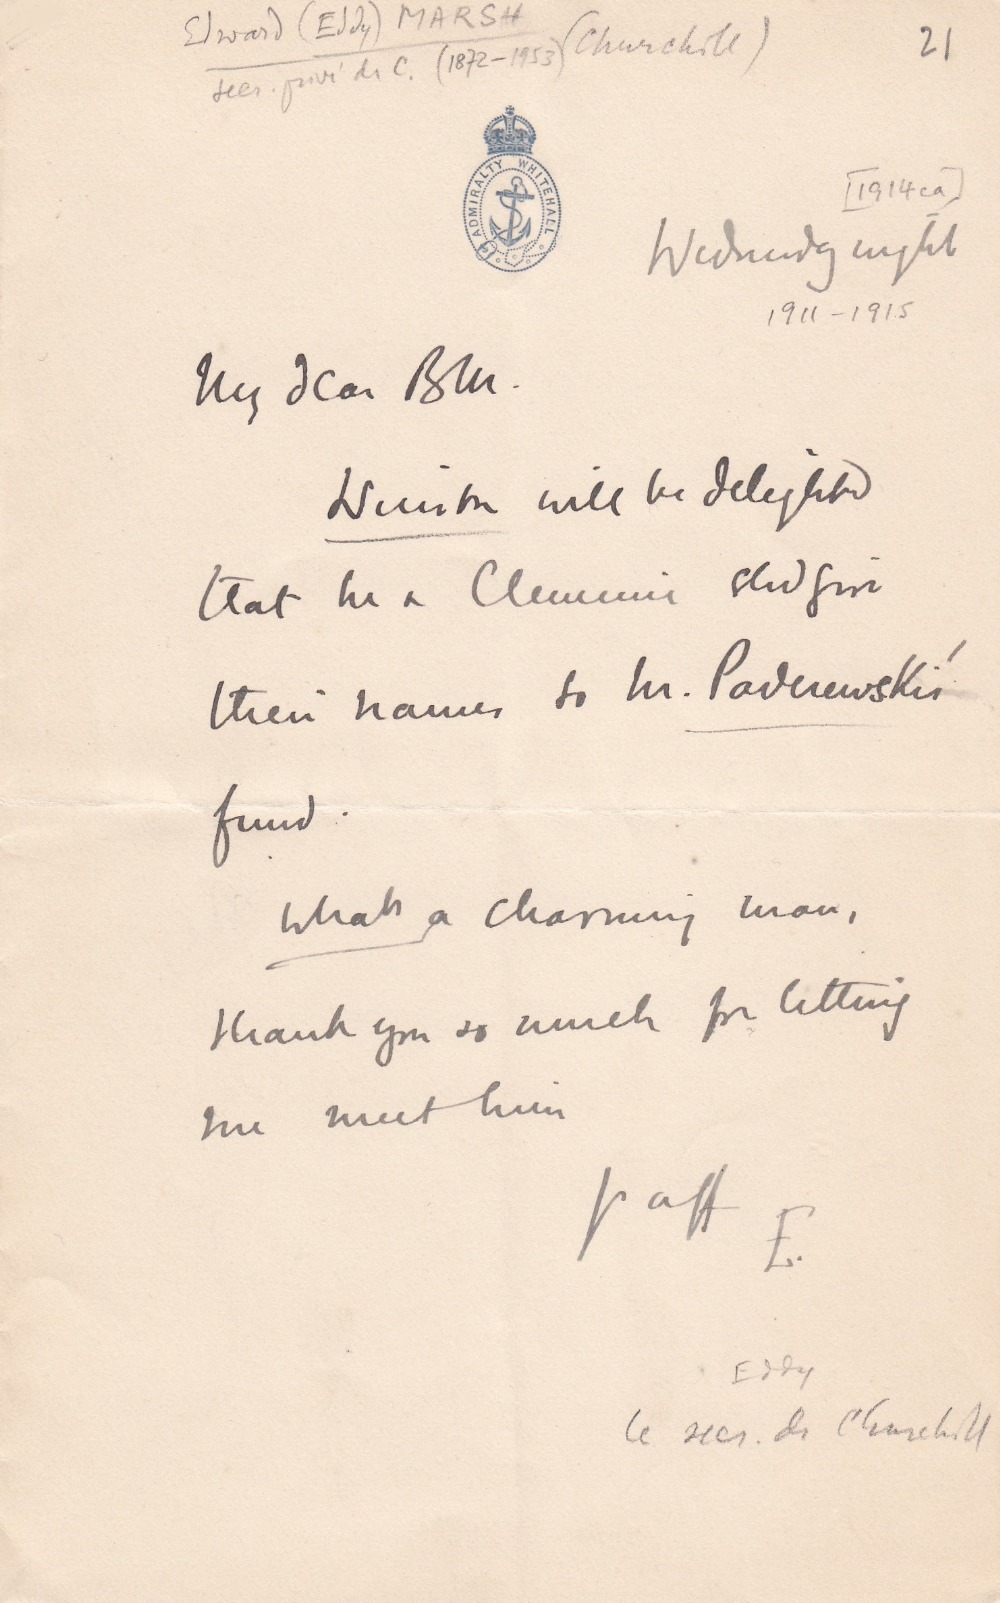 Edward (Eddy) MARSH (Churchill)
secr. privé de C. (1872–1953)
21
ADMIRALTY WHITEHALL
[1914 ca]
Wednesday night
1911–1915
My dear BM.
Winston will be delighted
that he & Clemmie shd give
their names to Mr. Paderewski's
fund.
What a charming man,
thank you so much for letting
me meet him
yr aff E.
Eddy
le secr. de Churchill